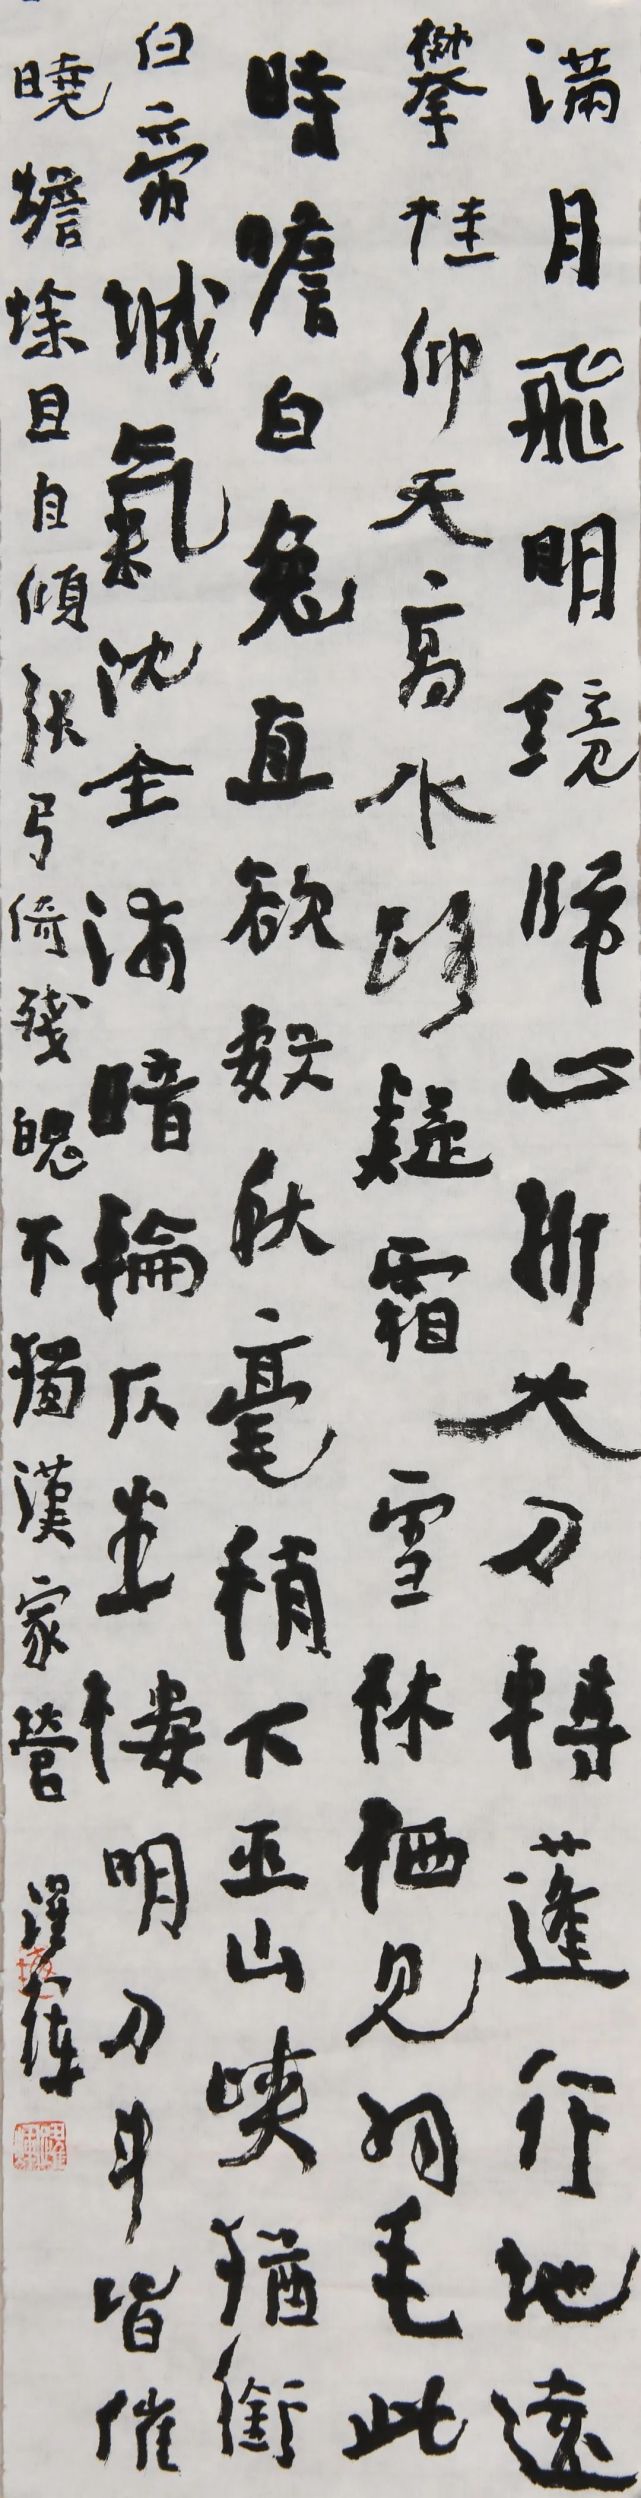 滿月飛明鏡帰心折大刀轉蓬行地遠
攀桂仰天高水路疑霜雪林栖見羽毛此
時瞻白兔直欲數秋毫稍下巫山峽猶銜
白帝城氣沈全浦暗輪仄半樓明刁斗皆催
曉蟾蜍且自傾張弓倚殘魄不獨漢家營